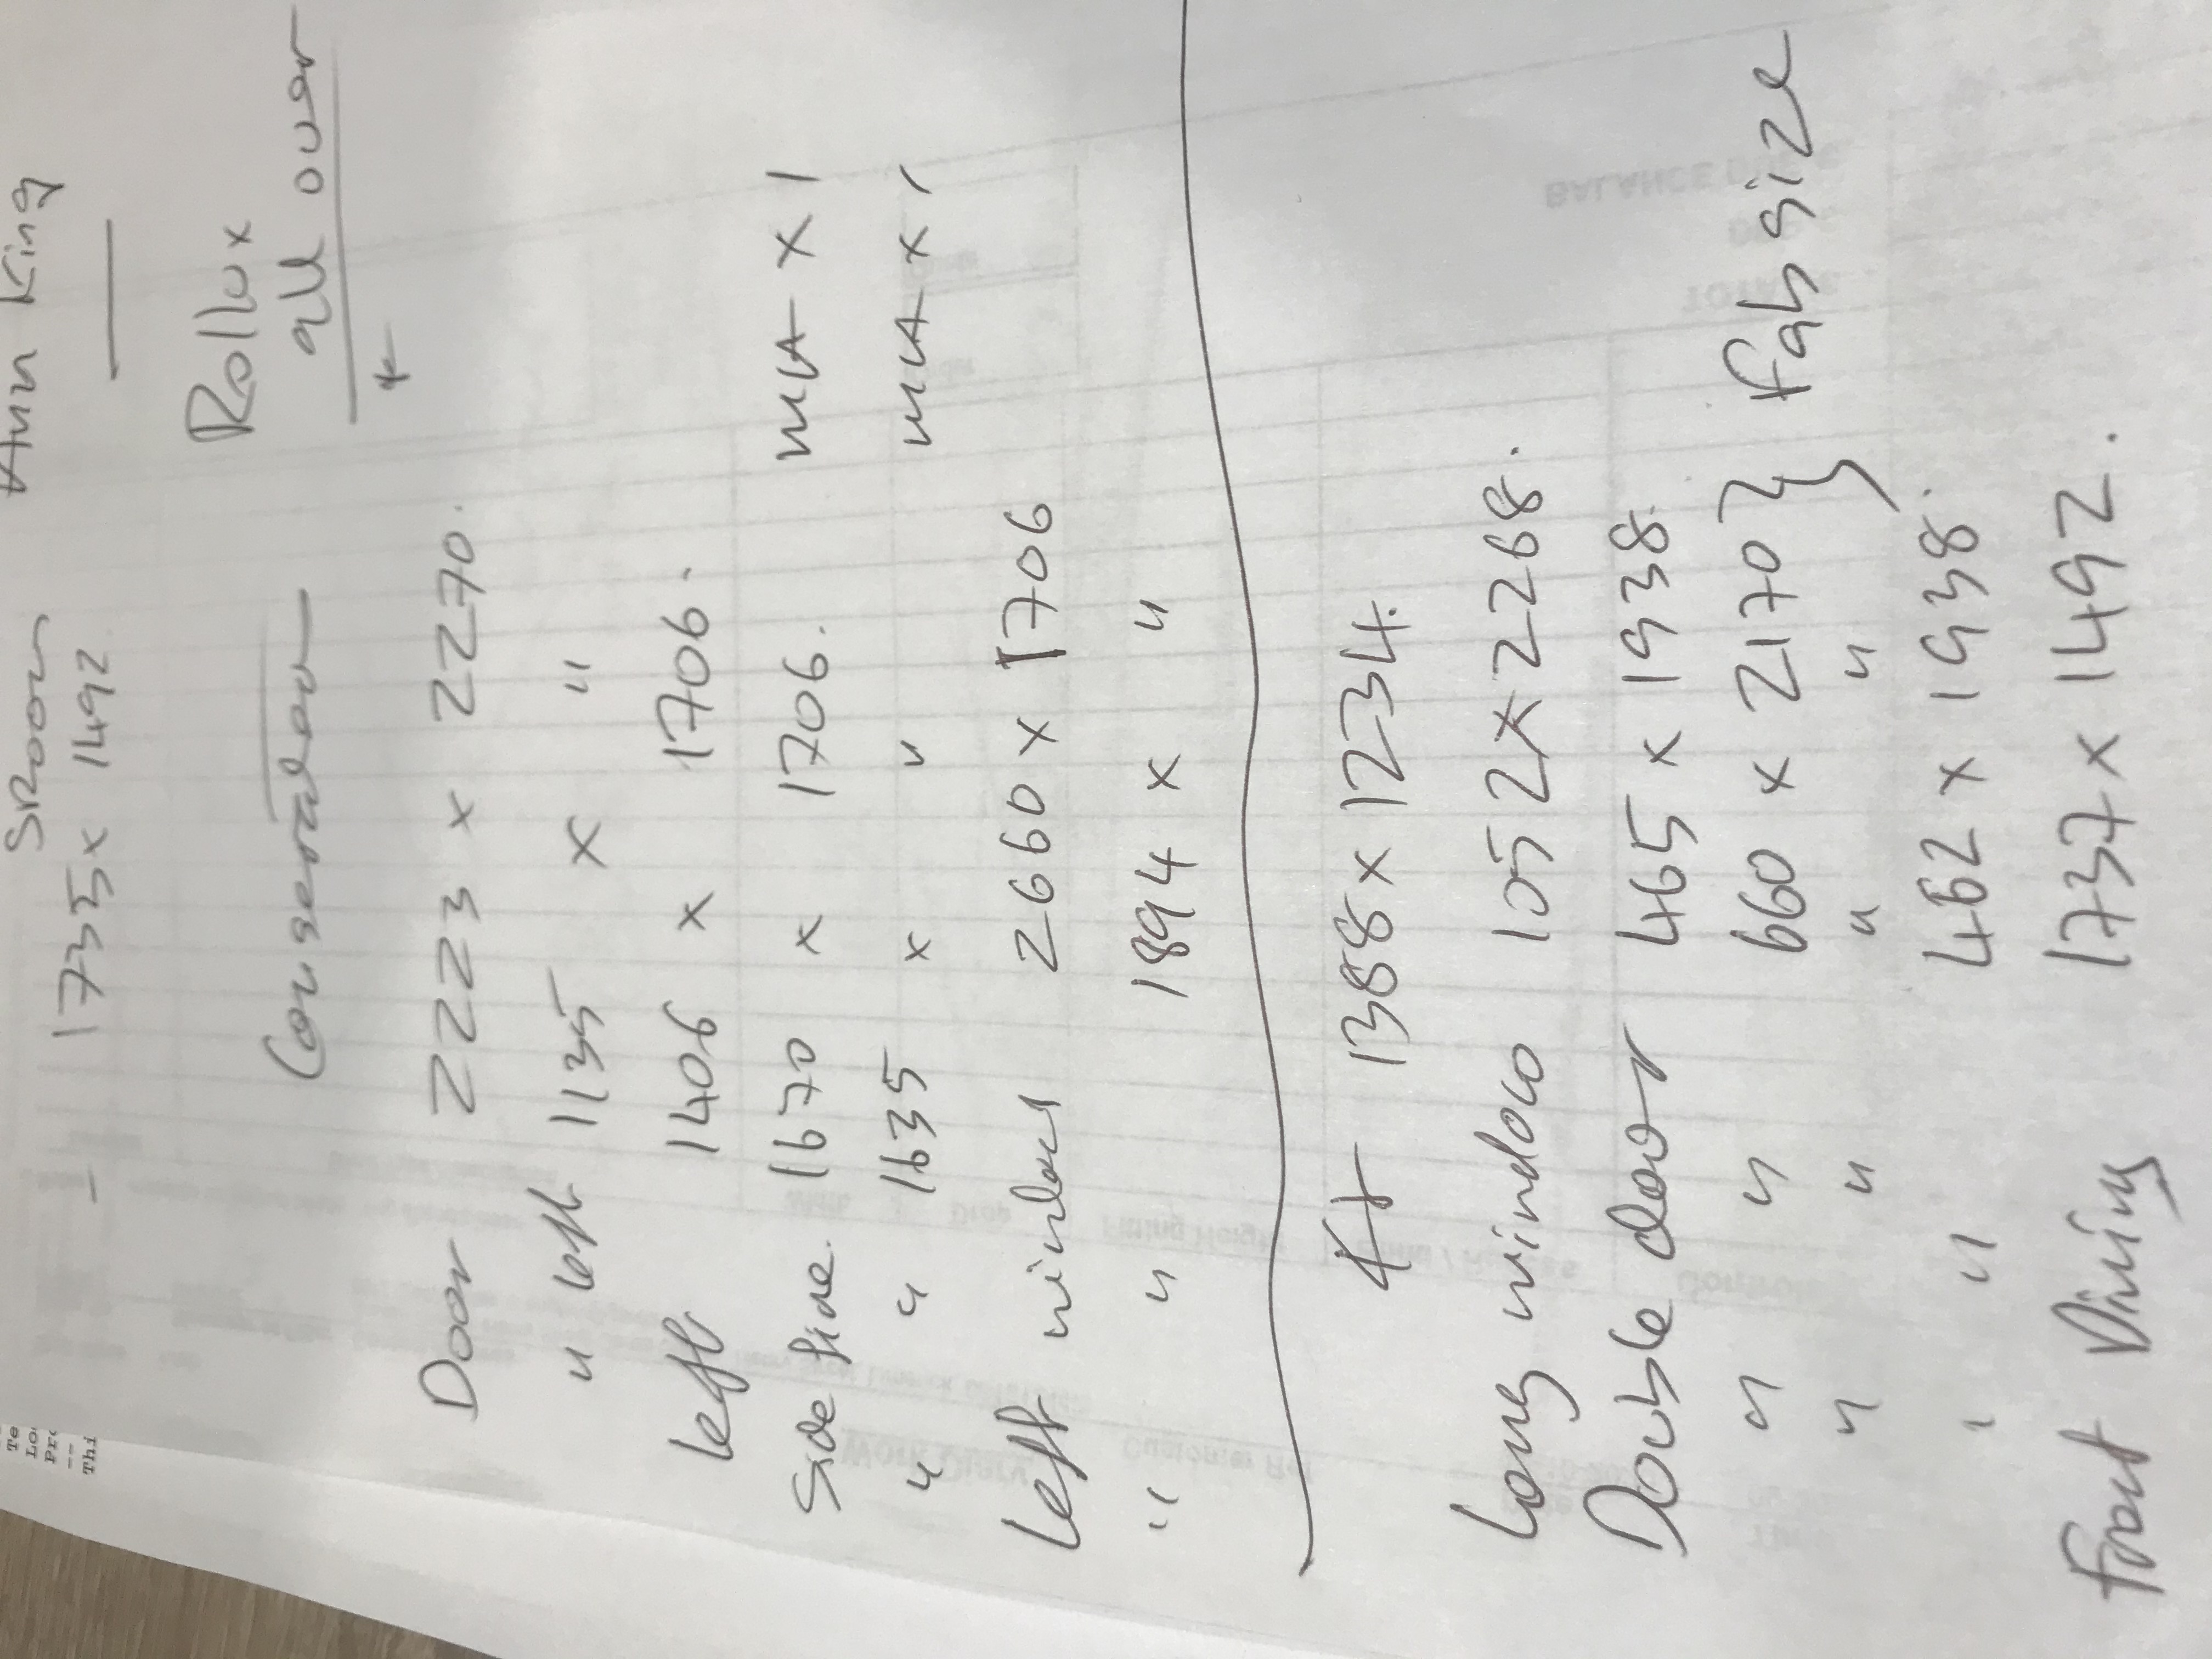 Ann King
SRoom
1735 x 1492
Rollux
all over
Conservatory
Door 2223 x 2270.
" left 1135 x "
left 1406 x 1706.
Side fine. 1670 x 1706. MA x 1
" " 1635 x " MA x 1
Left window 2660 x 1706
" " 1894 x "
Kit 1388 x 1234.
Long window 1052 x 2268.
Double door 465 x 1938.
" " 660 x 2170 } fab size
" " " "
" " 462 x 1938.
Front Dining 1737 x 1492.